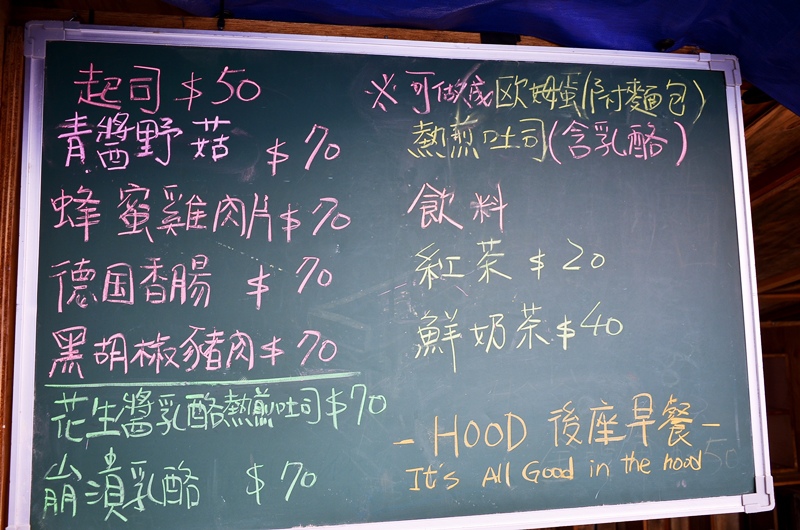 起司 $50
青醬野菇 $70
蜂蜜雞肉片 $70
德国香腸 $70
黑胡椒豬肉 $70
花生醬乳酪熱煎吐司 $70
崩潰乳酪 $70
※可做成歐姆蛋(附麵包)
熱煎吐司(含乳酪)
飲料
紅茶 $20
鮮奶茶 $40
- HOOD 後座早餐 -
It's All Good in the hood